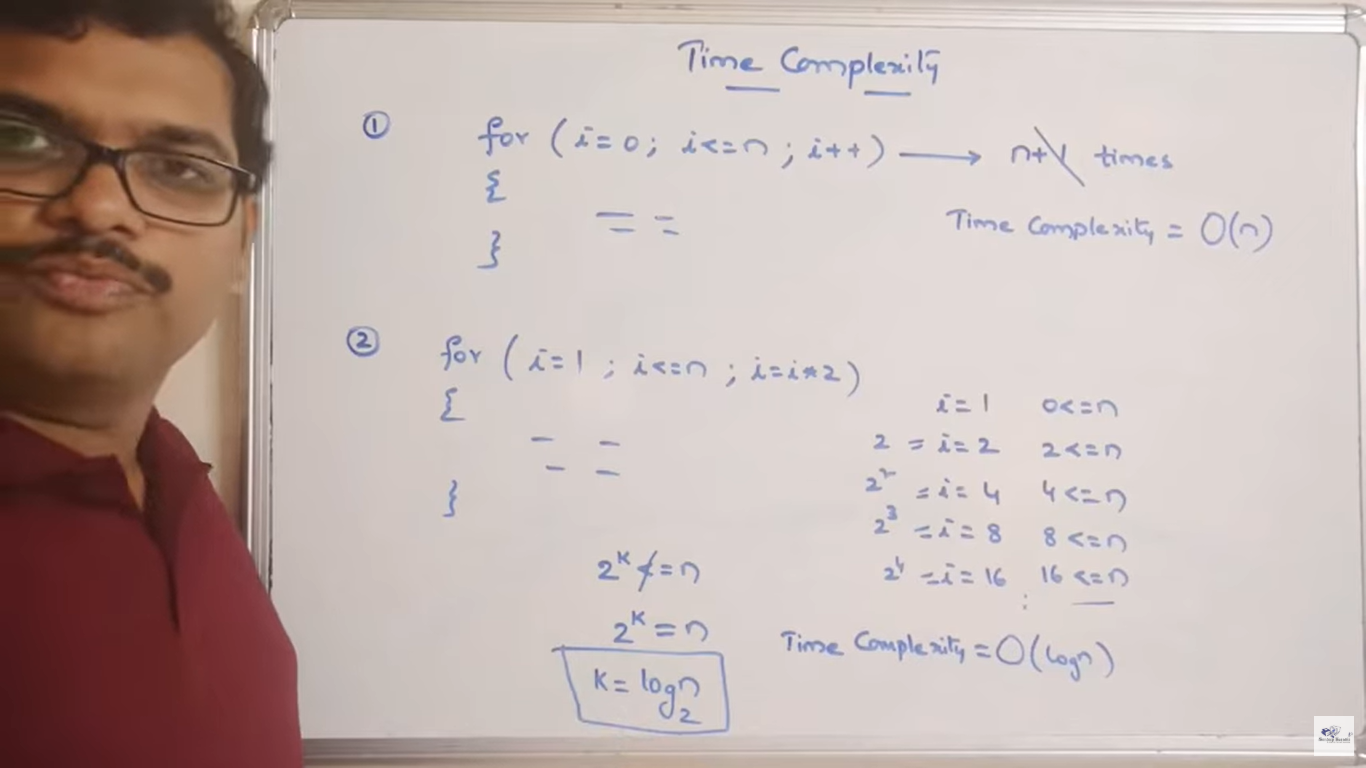 Time Complexity
① for (i=0; i<=n; i++) → n+1 times
{
}
Time Complexity = O(n)
② for (i=1; i<=n; i=i*2)
{
}
i=1 0<=n
2 = i=2 2<=n
2² = i=4 4<=n
2³ = i=8 8<=n
2⁴ = i=16 16<=n
:
2ᴷ <= n
2ᴷ = n
K = log₂n
Time Complexity = O(logn)